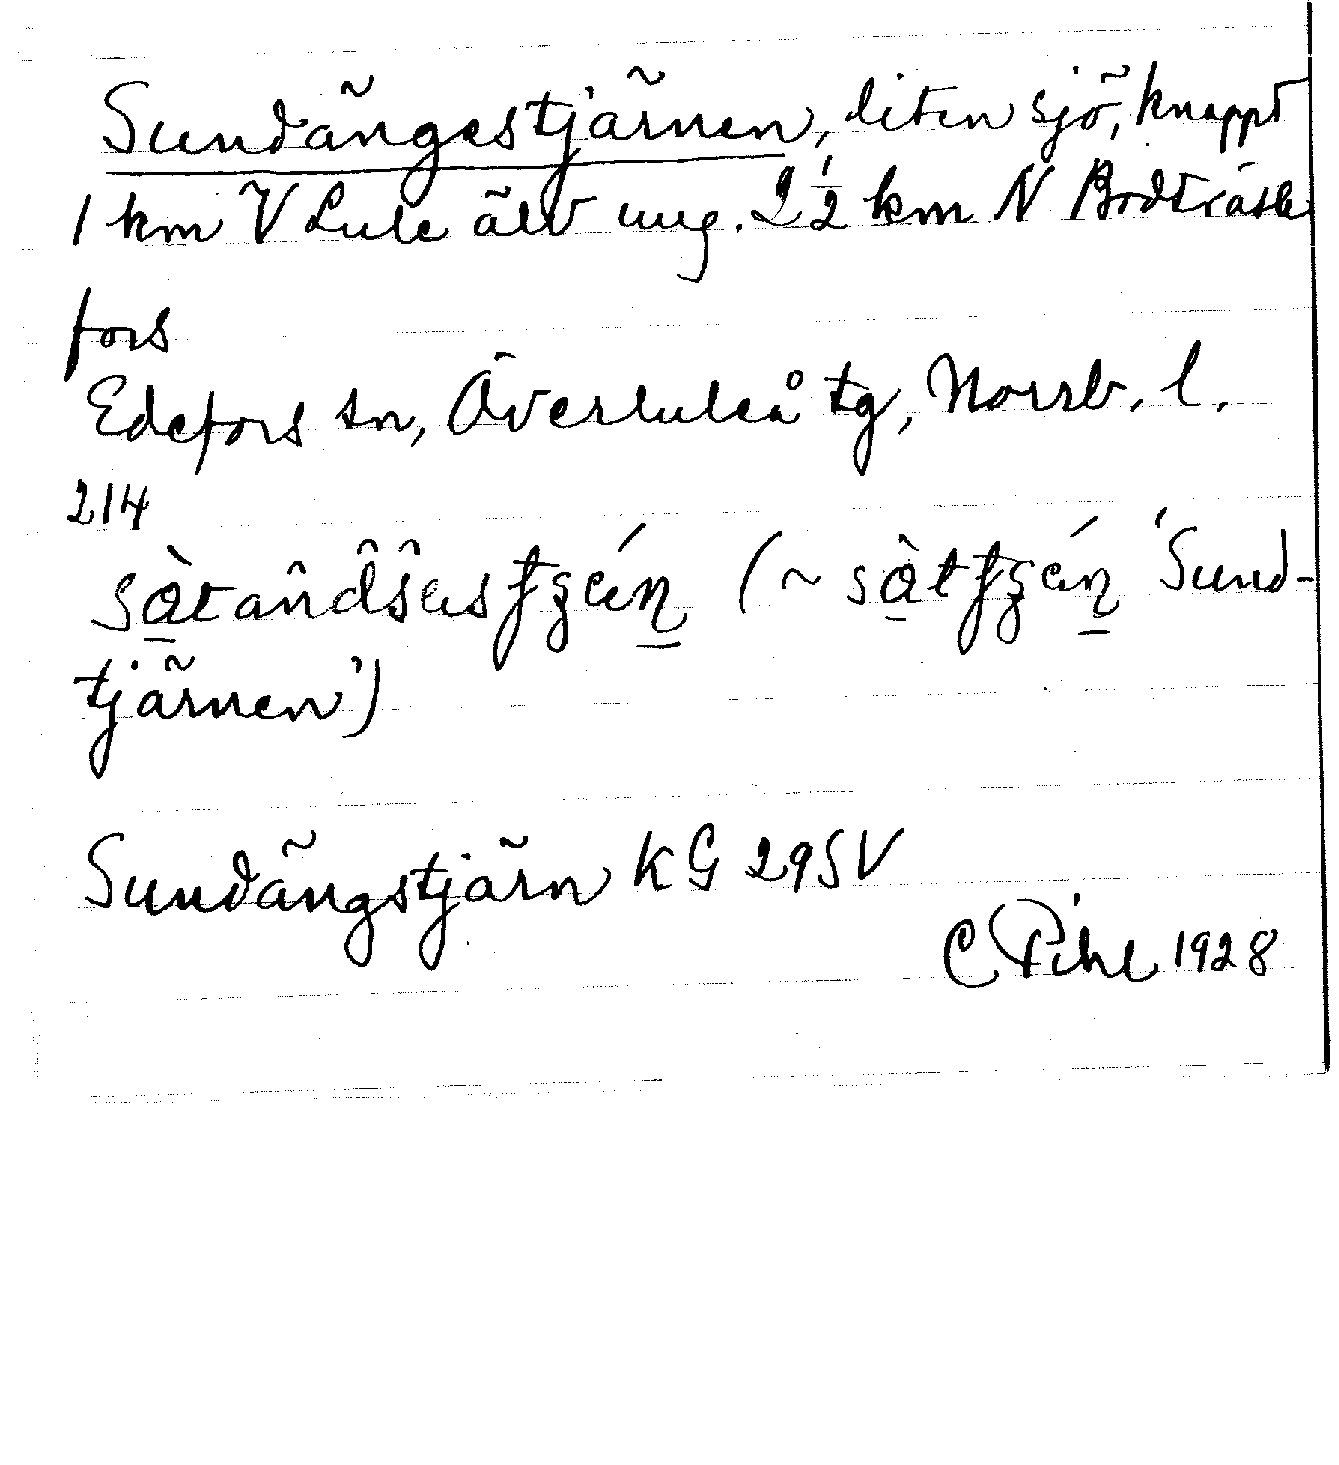 Sundängestjärnen, liten sjö, knappt
1 km V Lule älv ung. 2½ km N Bodträsk
fors
Edefors sn, Överluleå tg, Norrb. l.
214
'Sund-
tjärnen')
Sundängstjärn KG 29SV
C Pihl 1928